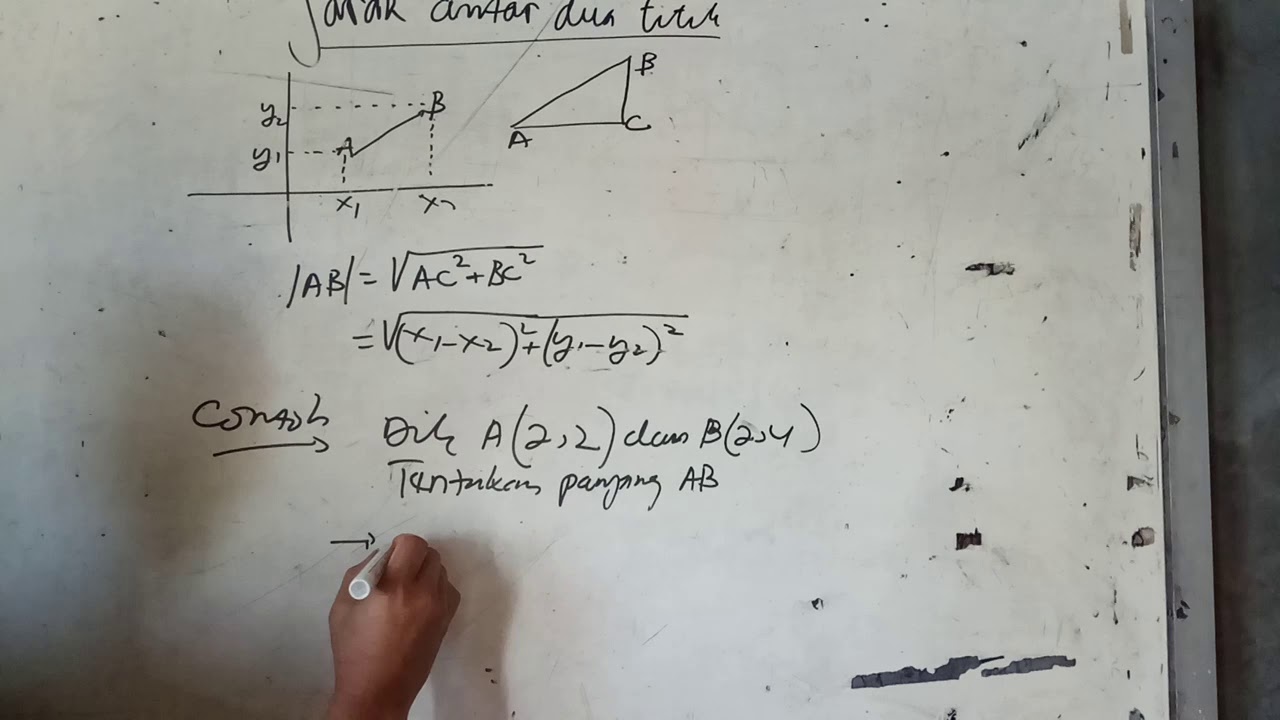 Jarak antar dua titik
y₂
y₁
A
B
x₁
x₂
A
B
C
|AB| = √(AC² + BC²)
= √((x₁ - x₂)² + (y₁ - y₂)²)
Contoh Dik A(2,2) dan B(2,4)
Tentukan panjang AB
→